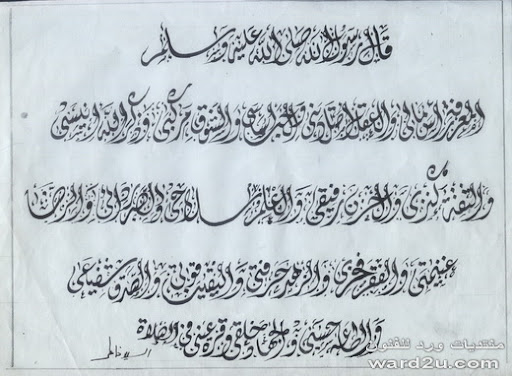 قال رسول الله صلى الله عليه وسلم
المعرفة رأس مالي والعقل أصل ديني والحب أساسي والشوق مركبي وذكر الله أنيسي
والثقة كنزي والحزن رفيقي والعلم سلاحي والصبر ردائي والرضا
غنيمتي والفقر فخري والزهد حرفتي واليقين قوتي والصدق شفيعي
والطاعة حسبي والجهاد خلقي وقرة عيني في الصلاة
منتديات ورد للفنون
ward2u.com